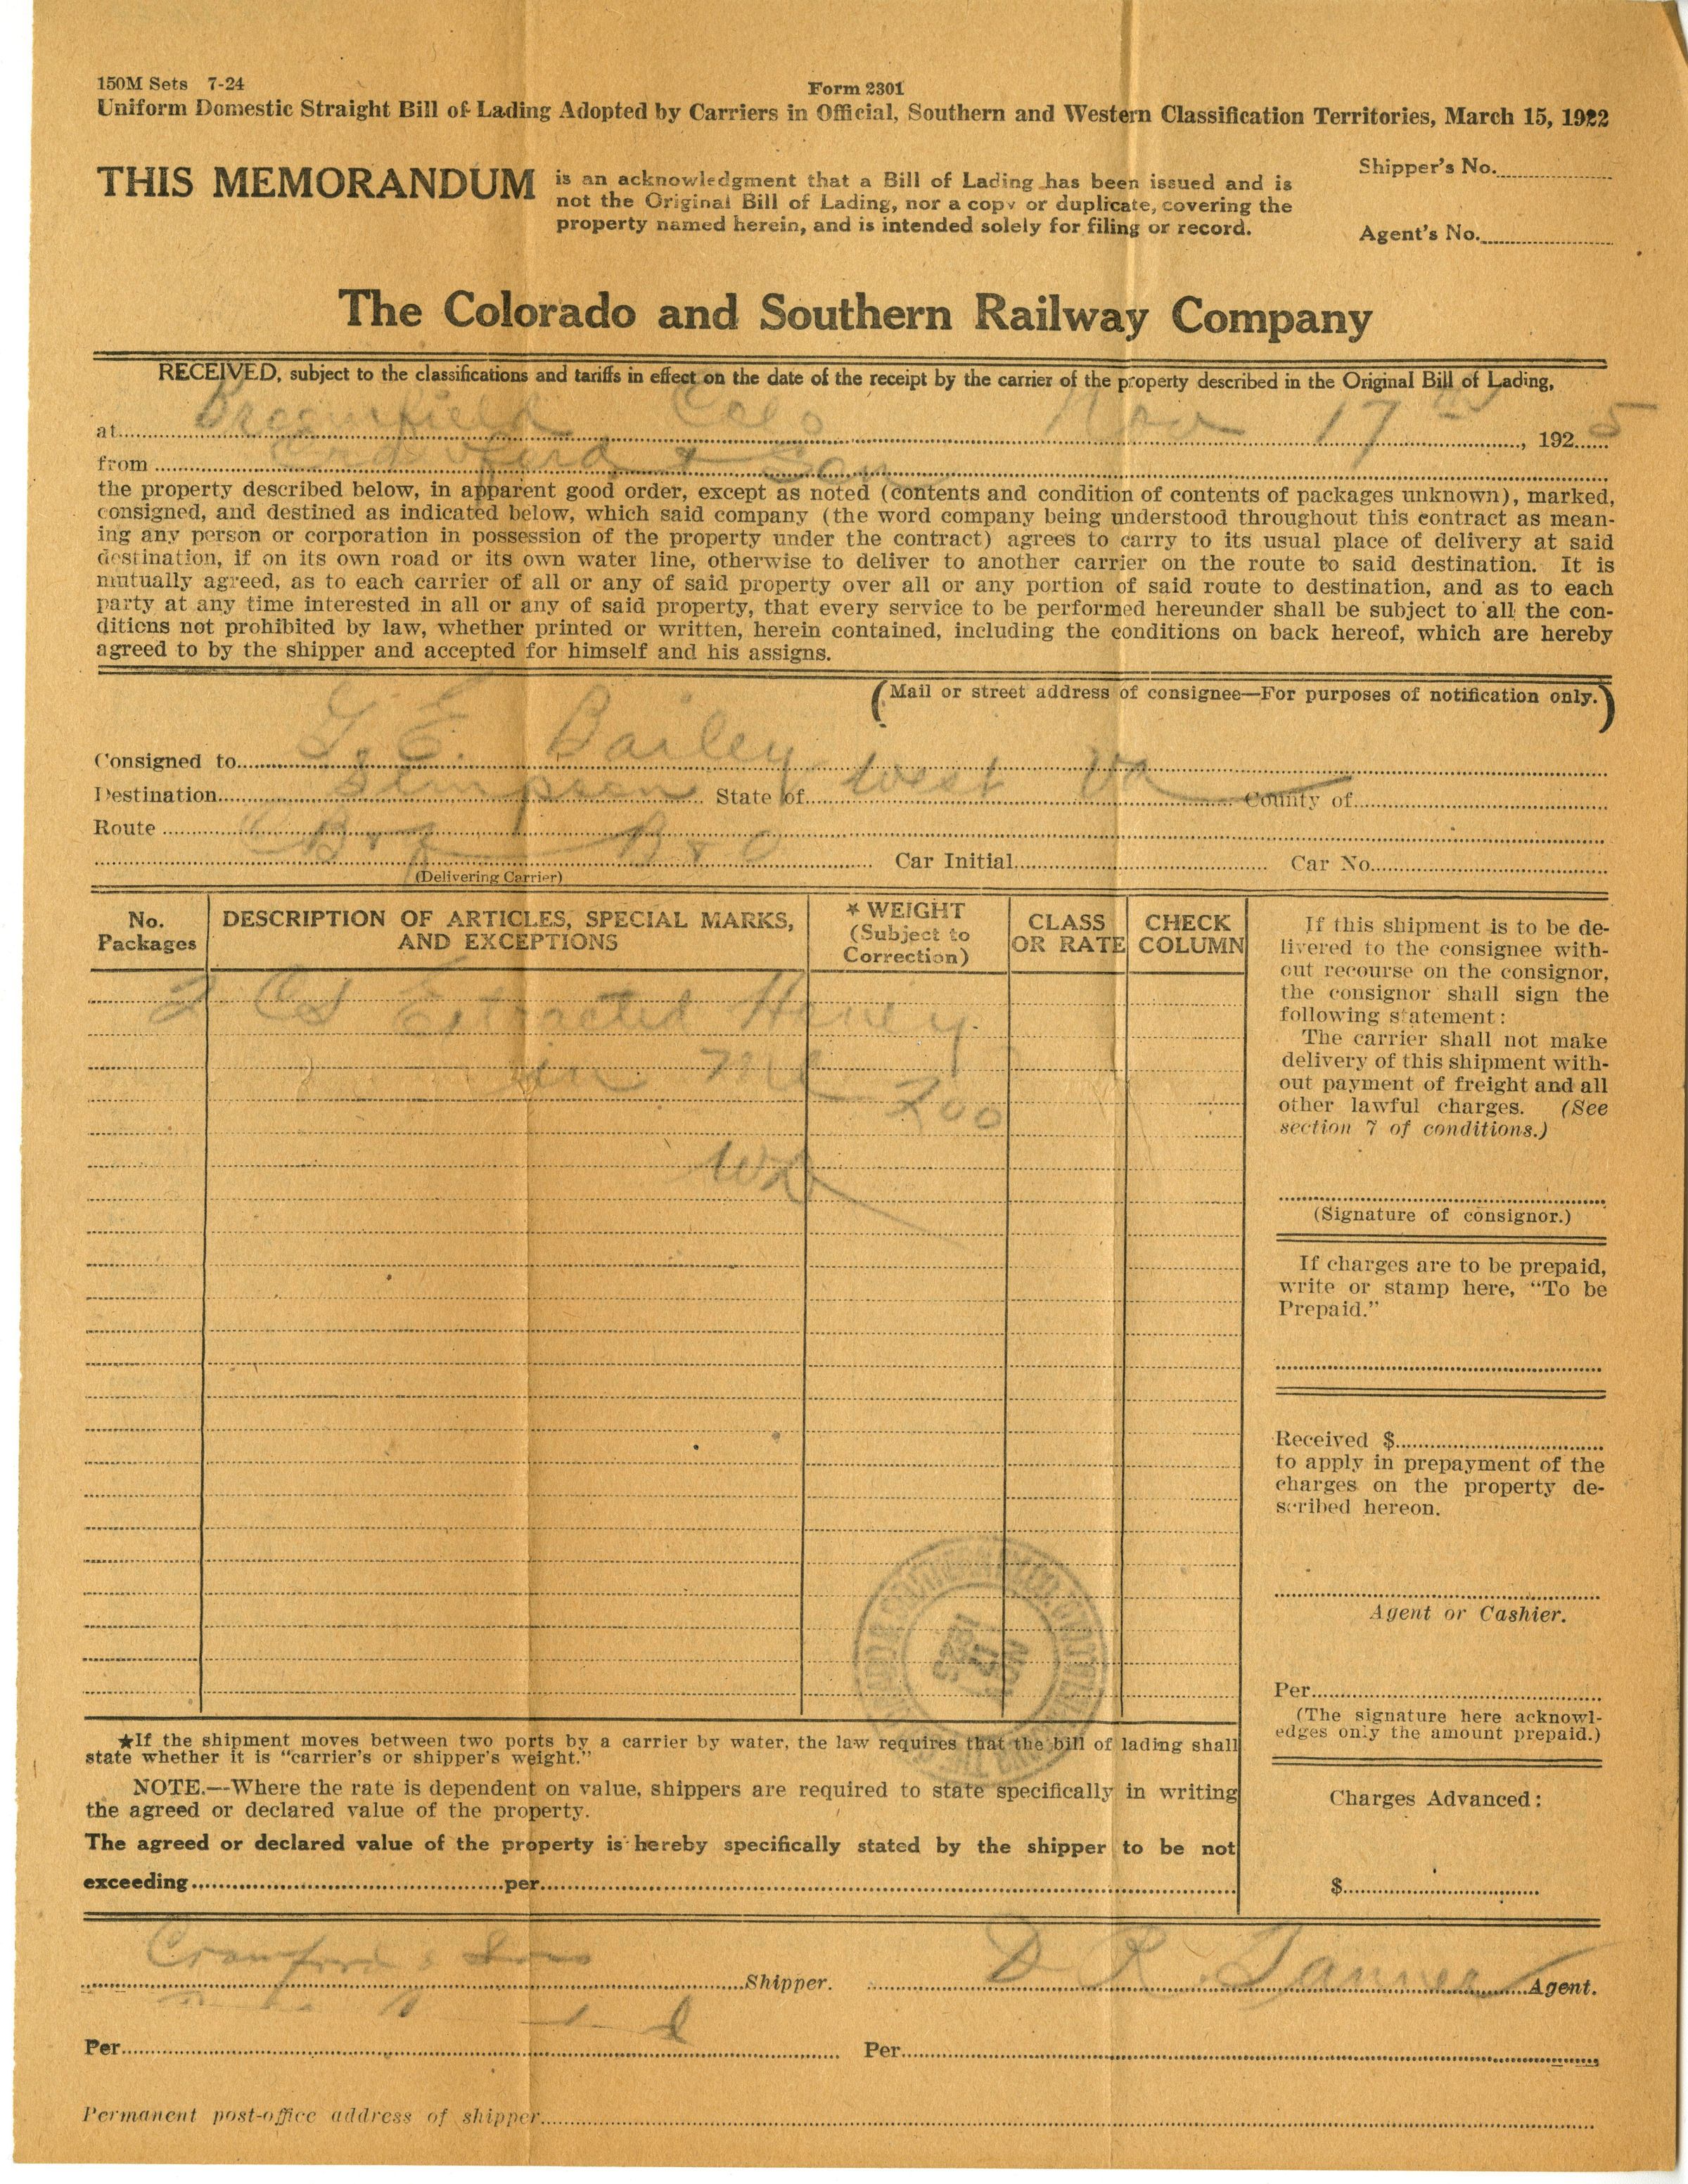 150M Sets 7-24
Form 2301
Uniform Domestic Straight Bill of Lading Adopted by Carriers in Official, Southern and Western Classification Territories, March 15, 1922
THIS MEMORANDUM
is an acknowledgment that a Bill of Lading has been issued and is
not the Original Bill of Lading, nor a copy or duplicate, covering the
property named herein, and is intended solely for filing or record.
Shipper's No.
Agent's No.
The Colorado and Southern Railway Company
RECEIVED, subject to the classifications and tariffs in effect on the date of the receipt by the carrier of the property described in the Original Bill of Lading,
at Broomfield Colo Nov 17th, 1925
from Crawford & Son
the property described below, in apparent good order, except as noted (contents and condition of contents of packages unknown), marked,
consigned, and destined as indicated below, which said company (the word company being understood throughout this contract as mean-
ing any person or corporation in possession of the property under the contract) agrees to carry to its usual place of delivery at said
destination, if on its own road or its own water line, otherwise to deliver to another carrier on the route to said destination. It is
mutually agreed, as to each carrier of all or any of said property over all or any portion of said route to destination, and as to each
party at any time interested in all or any of said property, that every service to be performed hereunder shall be subject to all the con-
ditions not prohibited by law, whether printed or written, herein contained, including the conditions on back hereof, which are hereby
agreed to by the shipper and accepted for himself and his assigns.
(Mail or street address of consignee—For purposes of notification only.)
Consigned to G. E. Bailey
Destination Simpson State of West Va County of
Route B & O
(Delivering Carrier) Car Initial Car No.
No. Packages
DESCRIPTION OF ARTICLES, SPECIAL MARKS, AND EXCEPTIONS
* WEIGHT (Subject to Correction)
CLASS OR RATE
CHECK COLUMN
2 Cs Extracted Honey
in
200
If this shipment is to be de-
livered to the consignee with-
out recourse on the consignor,
the consignor shall sign the
following statement:
The carrier shall not make
delivery of this shipment with-
out payment of freight and all
other lawful charges. (See
section 7 of conditions.)
(Signature of consignor.)
If charges are to be prepaid,
write or stamp here, "To be
Prepaid."
Received $
to apply in prepayment of the
charges on the property de-
scribed hereon.
Agent or Cashier.
Per
(The signature here acknowl-
edges only the amount prepaid.)
Charges Advanced:
$
NOV 17 1925
★If the shipment moves between two ports by a carrier by water, the law requires that the bill of lading shall
state whether it is "carrier's or shipper's weight."
NOTE.—Where the rate is dependent on value, shippers are required to state specifically in writing
the agreed or declared value of the property.
The agreed or declared value of the property is hereby specifically stated by the shipper to be not
exceeding per
Crawford & Sons Shipper. D R. Tanner Agent.
Per Per
Permanent post-office address of shipper